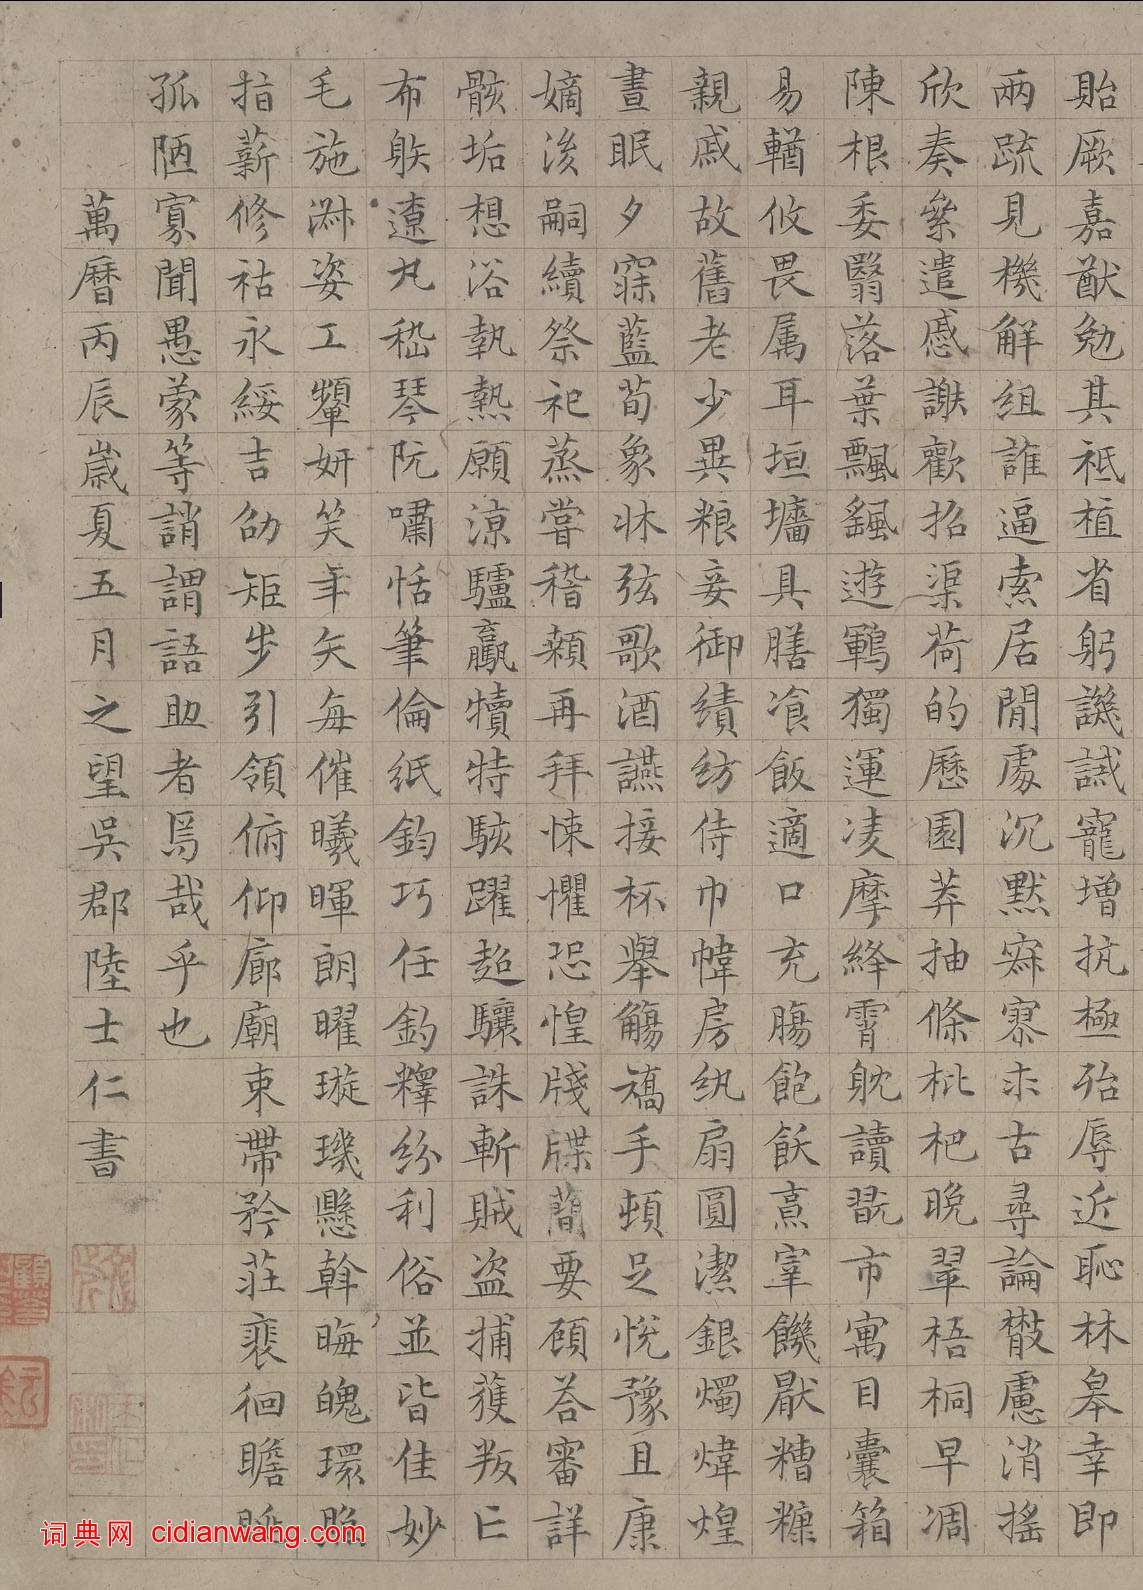 貽厥嘉猷勉其祗植省躬譏誡寵增抗極殆辱近恥林皋幸即
兩疏見機解組誰逼索居閒處沉默寂寥求古尋論散慮消搖
欣奏絫遣慼謝歡招渠荷的歷園莽抽條枇杷晚翠梧桐早凋
陳根委翳落葉飄颻遊鵾獨運凌摩絳霄躭讀翫市寓目囊箱
易輶攸畏属耳垣墻具膳飡飯適口充腸飽飫烹宰饑厭糟糠
親戚故舊老少異粮妾御績紡侍巾幃房紈扇圓潔銀燭煒煌
晝眠夕寐藍荀象牀弦歌酒讌接杯舉觴矯手頓足悅豫且康
嫡後嗣續祭祀蒸嘗稽顙再拜悚懼恐惶牋牒簡要顧荅審詳
骸垢想浴執熱願涼驢騾犢特駭躍超驤誅斬賊盜捕獲叛亡
布躲遼丸嵇琴阮嘯恬筆倫紙鈞巧任釣釋紛利俗並皆佳妙
毛施淋姿工顰妍笑年矢每催曦暉朗曜璇璣懸斡晦魄環照
指薪修祜永綏吉劭矩步引領俯仰廊廟束帶矜莊裴徊瞻眺
孤陋寡聞愚蒙等誚謂語助者焉哉乎也
萬曆丙辰歲夏五月之望吳郡陸士仁書
词典网 cidianwang.com